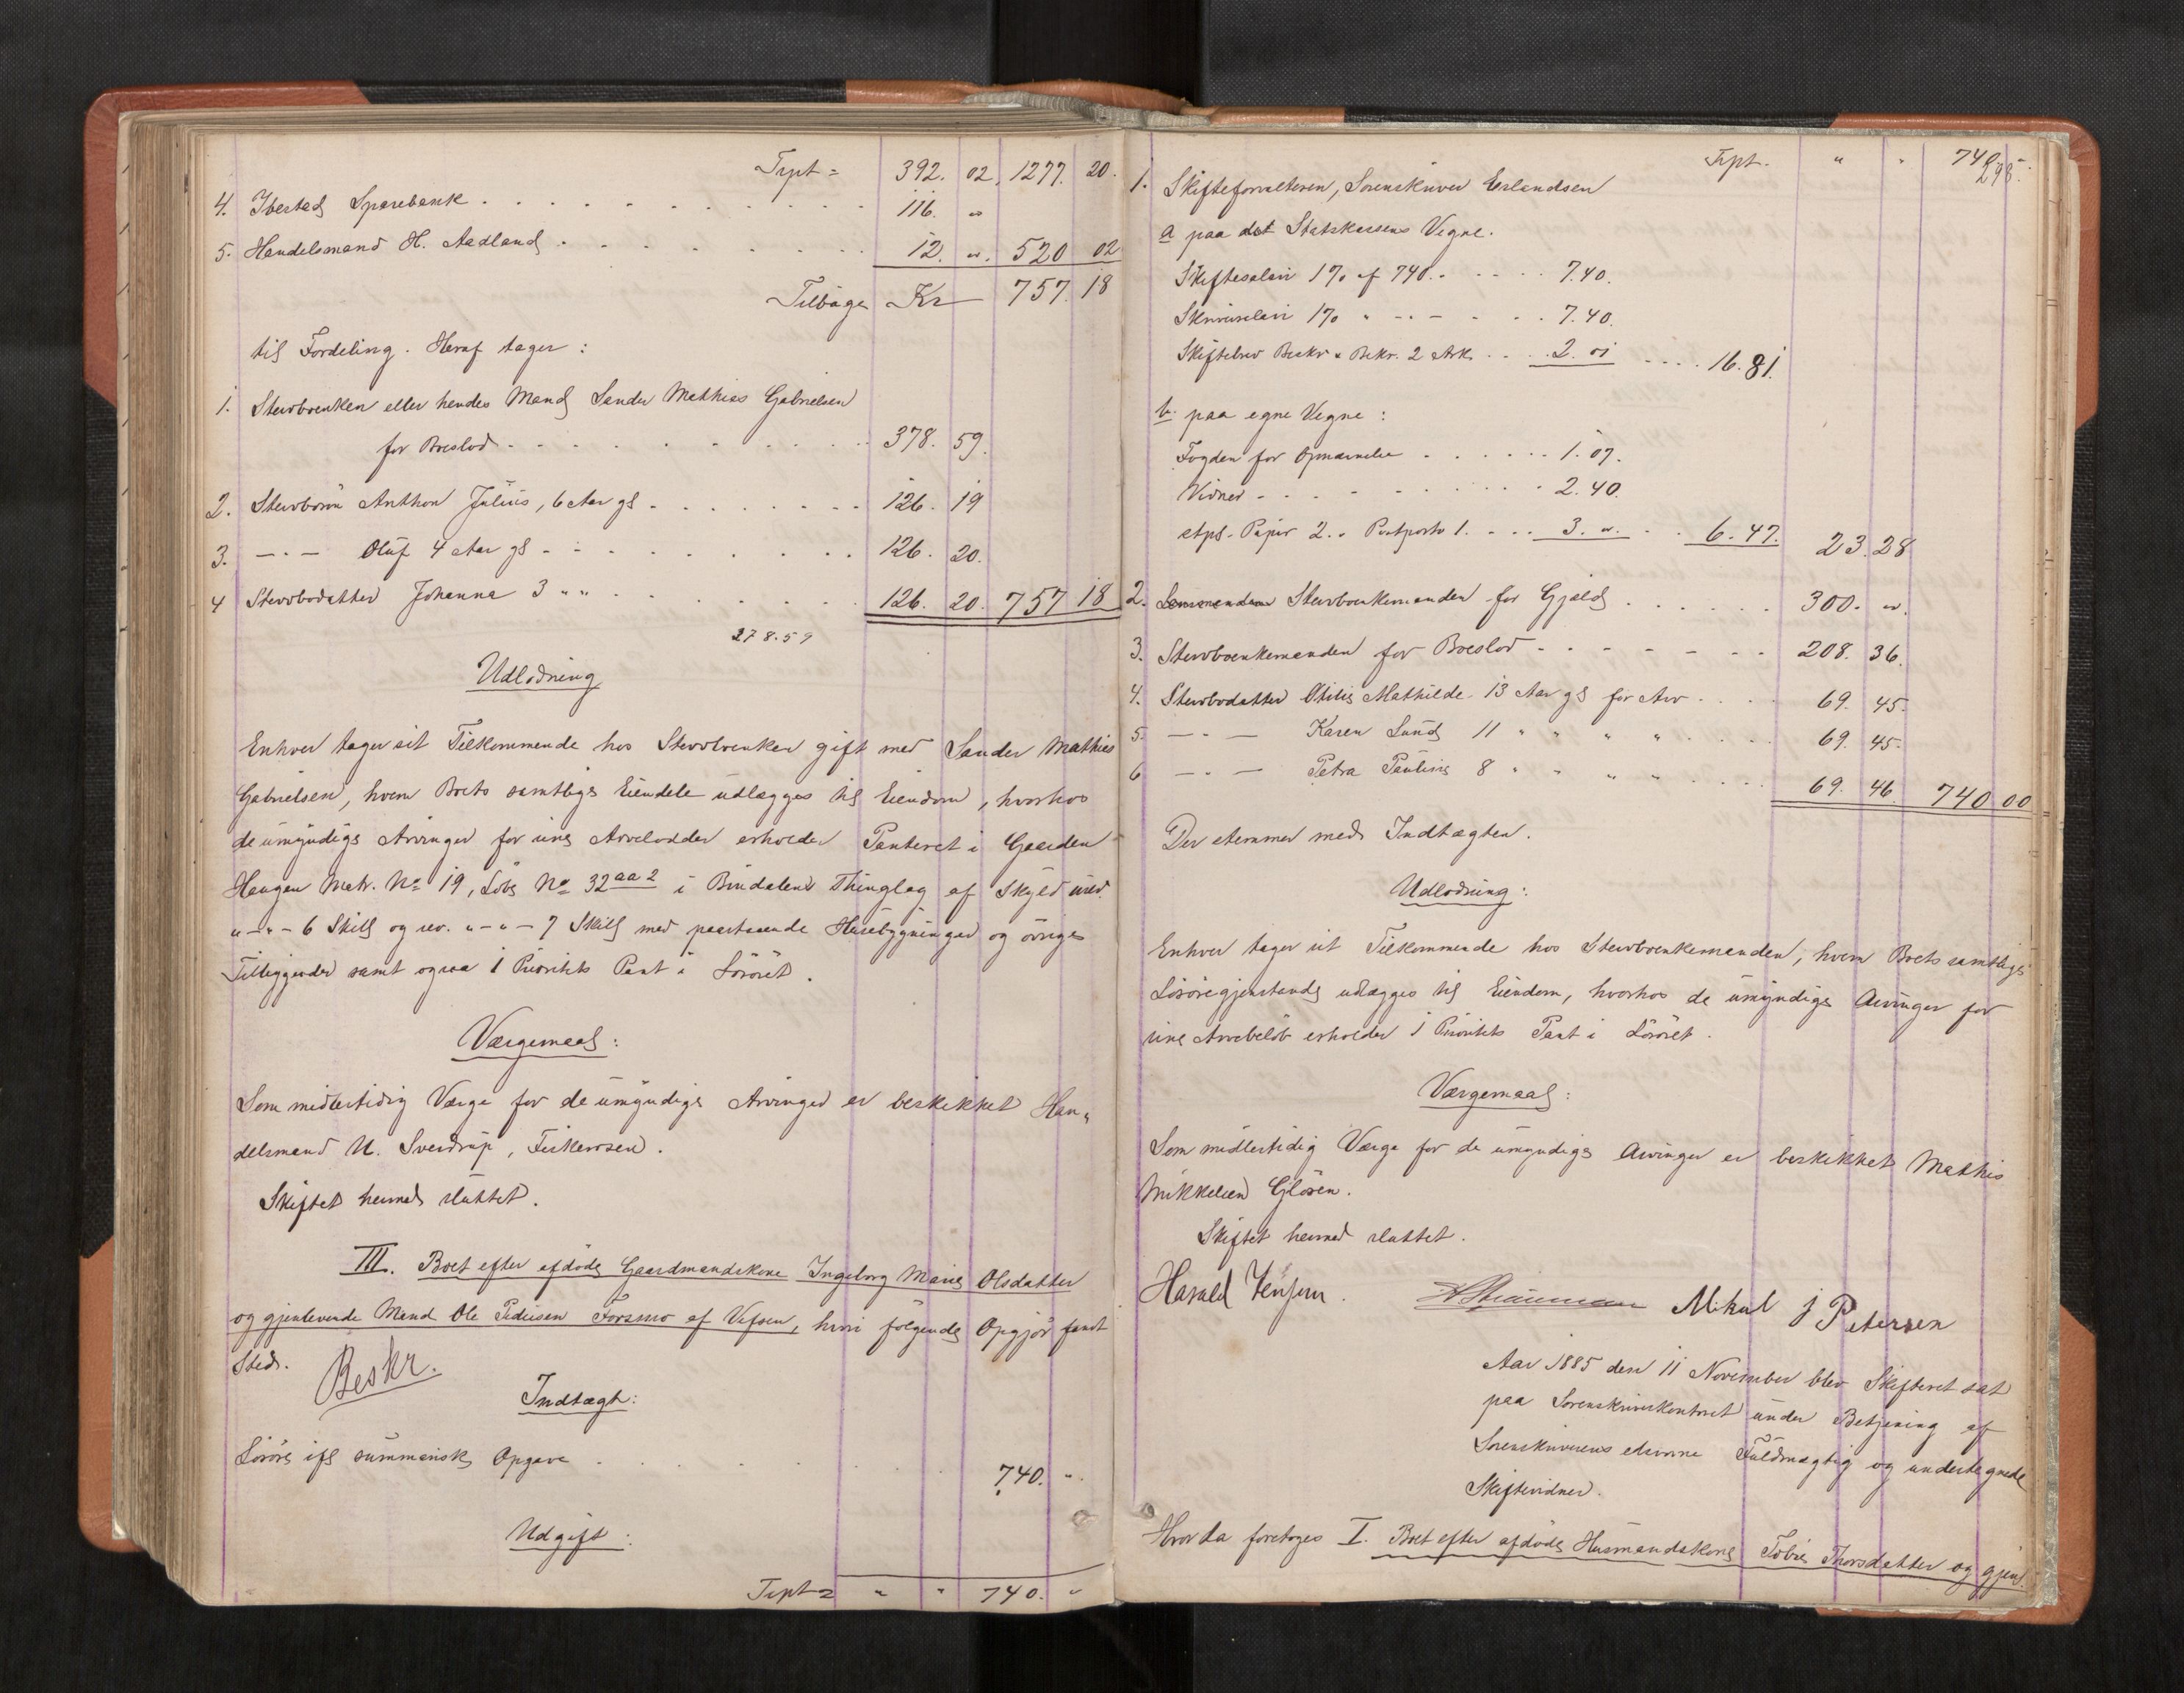 Trpt = 392. 02. 1277. 20.
4. Ibestad Sparebank . . . 116. "
5. Handelsmand H. Aadland . . . 12. ". 520 02
Tilbage Kr 757. 18
til Fordeling. Heraf tager:
1. Stervboenken eller hendes Mand Sander Mathias Gabrielsen
for Boeslod . . . 378. 59.
2. Stervbosön Anthon Julius, 6 Aar gl . . . 126. 19
3. — " — Oluf 4 Aar gl . . . 126. 20.
4 Stervbodatter Johanna 3 " " . . . 126. 20. 757 18
278.59
Udlodning
Enhver tager sit Tilkommende hos Stervboenken gift med Sander Mathias
Gabrielsen, hvem Boets samtlige Eiendele udlægges til Eiendom, hvorhos
de umyndige Arvinger for sine Arvelodder erholder Panteret i Gaarden
Haugen Matr. No 19, Löbe No 32 aa 2 i Bindalens Thinglag af Skyld med
" - " - 6 Skill og rev. " - " - 7 Skill med paastaaende Husebygninger og övrige
Tilliggender samt ogsaa 1 Prioritets Pant i Lösöret.
Værgemaal:
Som midlertidig Værge for de umyndige Arvinger er beskikket Han„
delsmand U. Sverdrup, Fiskerosen.
Skiftet hermed sluttet.
III. Boet efter afdöde Gaardmandskone Ingeborg Marie Olsdatter
og gjenlevende Mand Ole Pedersen Forsmo af Vefsen, hvori fölgende Opgjör fandt
Sted.
Beskr.
Indtægt:
Lösöre ifl summarisk Opgave . . . 740. "
Udgift:
Trpt = " " 740. "
298.
Trpt. " " 740
1. Skifteforvalteren, Sorenskriver Erlandsen
a paa det Statskassens Vegne.
Skiftesalær 1 % af 740. . . . 7.40.
Skriversalær 1 % " . . . 7.40.
Skiftebrev Beskr & Bekr. 2 Ark . . . 2. 01 . . . 16. 81.
b. paa egne Vegne:
Fogden for Opnævnelse . . . 1. 07.
Vidner . . . 2. 40.
stpl. Papir 2. " Postporto 1. . . . 3. ". . . 6. 47. 23. 28
2. Stervboenkemanden for Gjæld . . . 300. ".
3. Stervboenkemanden for Boeslod . . . 208. 36.
4. Stervbodatter Otilie Mathilde 13 Aar gl for Arv . . . 69. 45.
5. — " — Karen Lund 11 " " " " . . . 69. 45.
6 — " — Petra Pauline 8 " " " " . . . 69. 46. 740 00
Der stemmer med Indtægten.
Udlodning:
Enhver tager sit Tilkommende hos Stervboenkemanden, hvem Boets samtlige
Lösöregjenstande udlægges til Eiendom, hvorhos de umyndige Arvinger for
sine Arvebelöb erholder 1 Prioritets Pant i Lösöret.
Værgemaal:
Som midlertidig Værge for de umyndige Arvinger er beskikket Mathis
Mikkelsen Glösen.
Skiftet hermed sluttet.
Harald Jensen. Mikal J Petersen
Aar 1885 den 11 November blev Skifteret sat
paa Sorenskriverkontoret under Betjening af
Sorenskriverens edsvorne Fuldmægtig og undertegnede
Skiftevidner.
Hvor da foretoges I. Boet efter afdöde Husmandskone Tobie Thorsdatter og gjenl.